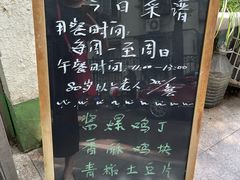 今日菜谱
用餐时间:
每周一至周日
午餐时间 11:00-13:00
80岁以上老人
酱爆鸡丁
香麻鸡块
青椒土豆片